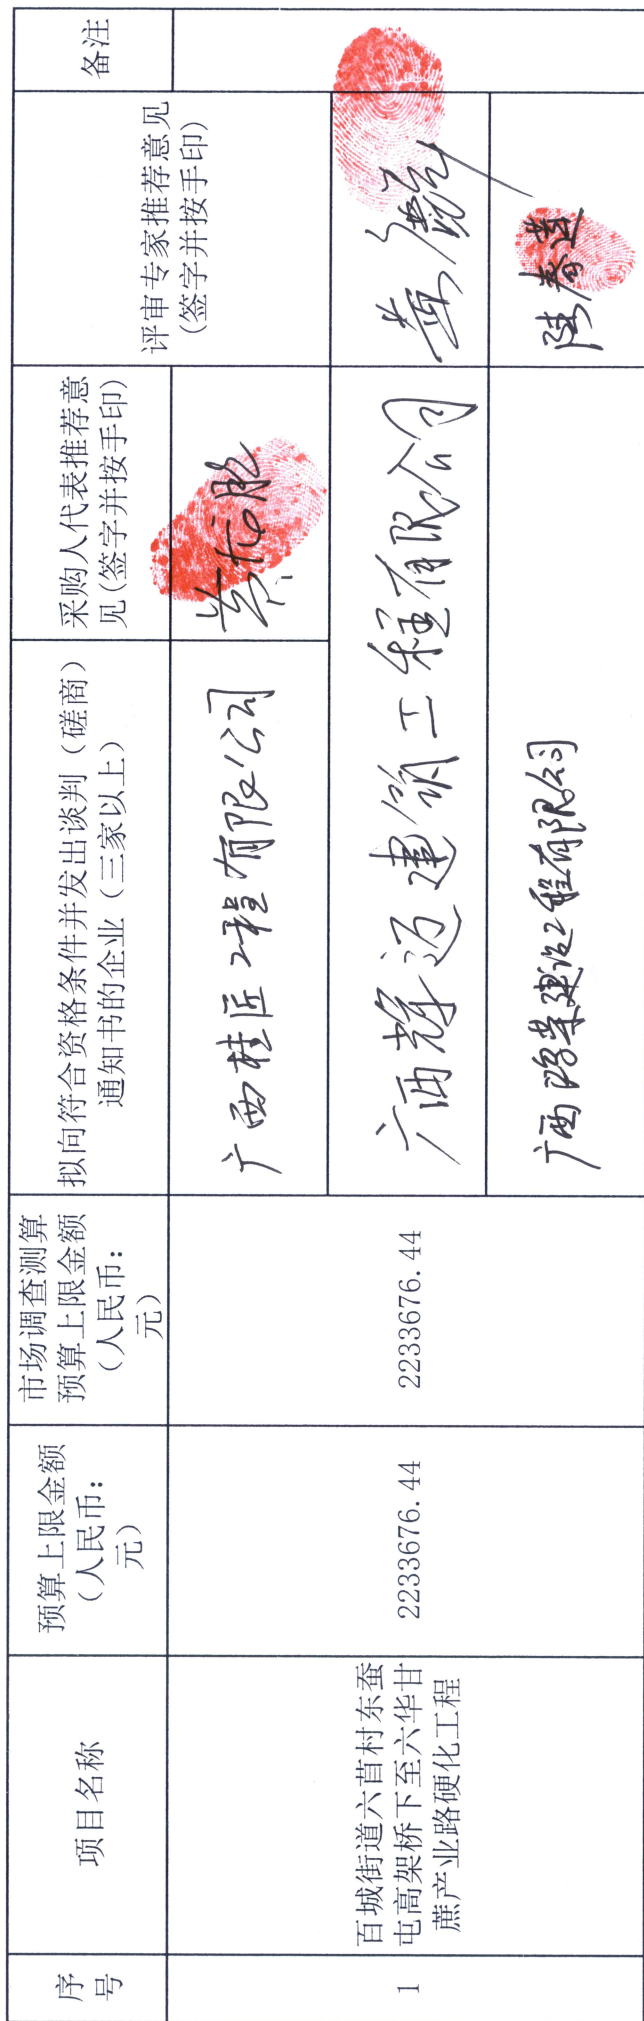 序
号
项目名称
预算上限金额
（人民币：
元）
市场调查测算
预算上限金额
（人民币：
元）
拟向符合资格条件并发出谈判（磋商）
通知书的企业（三家以上）
采购人代表推荐意
见(签字并按手印)
评审专家推荐意见
(签字并按手印)
备注
1
百城街道六苜村东蚕
屯高架桥下至六华甘
蔗产业路硬化工程
2233676.44
2233676.44
广西桂匠工程有限公司
广西辉迈建筑工程有限公司
广西鸿荣建设工程有限公司
陆春燕